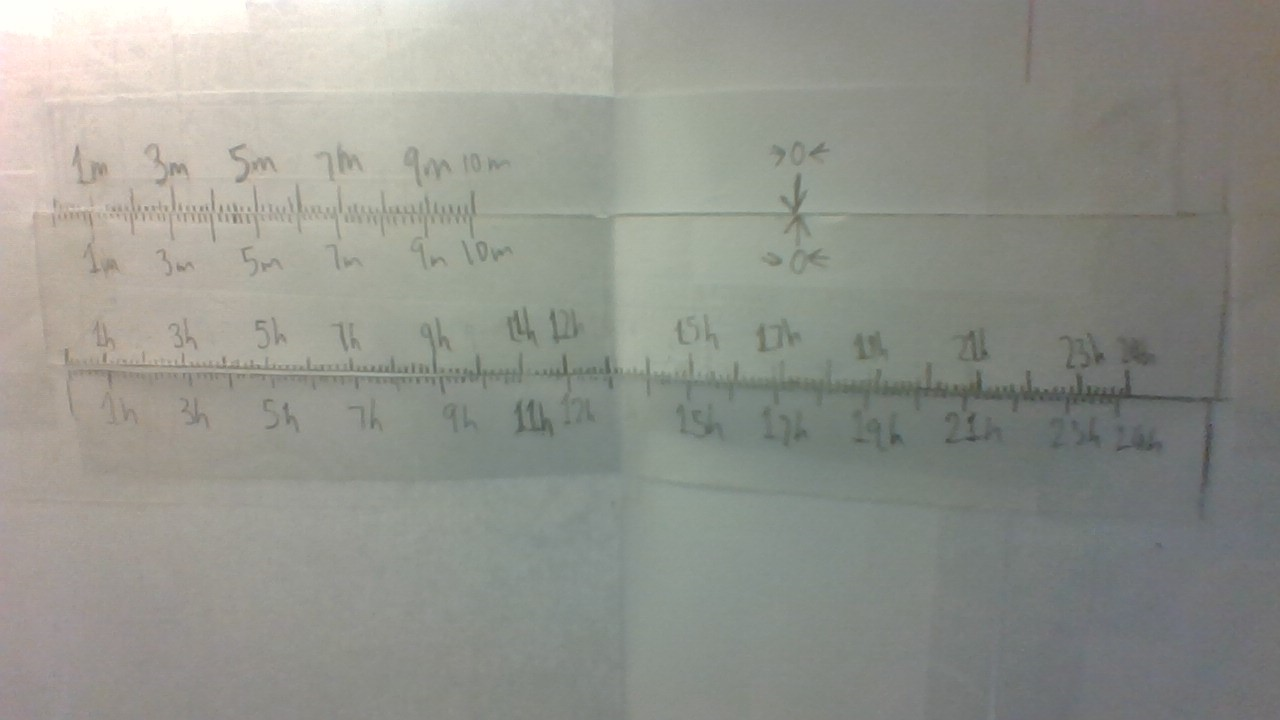 1m 3m 5m 7m 9m 10m →0←
1m 3m 5m 7m 9m 10m →0←
1h 3h 5h 7h 9h 11h 12h 15h 17h 19h 21h 23h 24h
1h 3h 5h 7h 9h 11h 12h 15h 17h 19h 21h 23h 24h